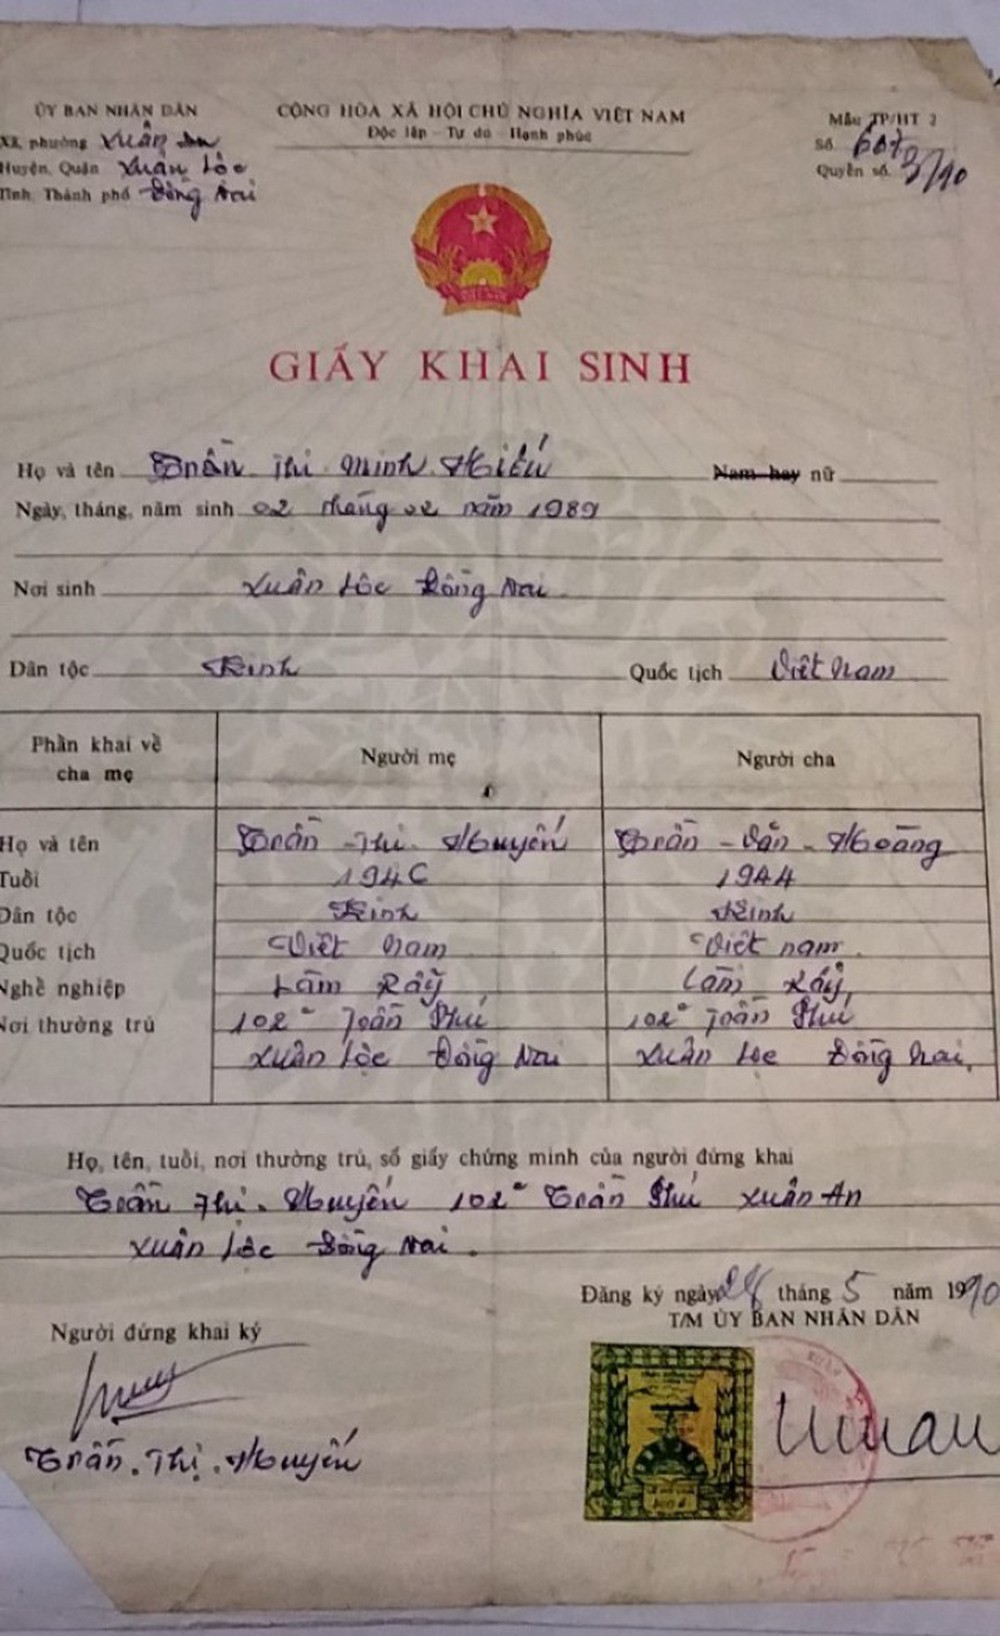 ỦY BAN NHÂN DÂN
Xã, phường Xuân An
Huyện, Quận Xuân Lộc
Tỉnh, Thành phố Đồng Nai
CỘNG HÒA XÃ HỘI CHỦ NGHĨA VIỆT NAM
Độc lập - Tự do - Hạnh phúc
Mẫu TP/HT 2
Số 607
Quyển số 3/90
GIẤY KHAI SINH
Họ và tên Trần Thị Minh Hiếu Nam hay nữ
Ngày, tháng, năm sinh 02 tháng 02 năm 1989
Nơi sinh Xuân Lộc Đồng Nai
Dân tộc Kinh Quốc tịch Việt Nam
Phần khai về cha mẹ Người mẹ Người cha
Họ và tên Trần Thị Huyến Trần Văn Hoàng
Tuổi 1946 1944
Dân tộc Kinh Kinh
Quốc tịch Việt Nam Việt Nam
Nghề nghiệp Làm Rẫy Làm Rẫy
Nơi thường trú 102 Trần Phú 102 Trần Phú
Xuân Lộc Đồng Nai Xuân Lộc Đồng Nai.
Họ, tên, tuổi, nơi thường trú, số giấy chứng minh của người đứng khai
Trần Thị Huyến 102 Trần Phú Xuân An
Xuân Lộc Đồng Nai.
Đăng ký ngày tháng 5 năm 1990
T/M ỦY BAN NHÂN DÂN
Người đứng khai ký
Trần Thị Huyến